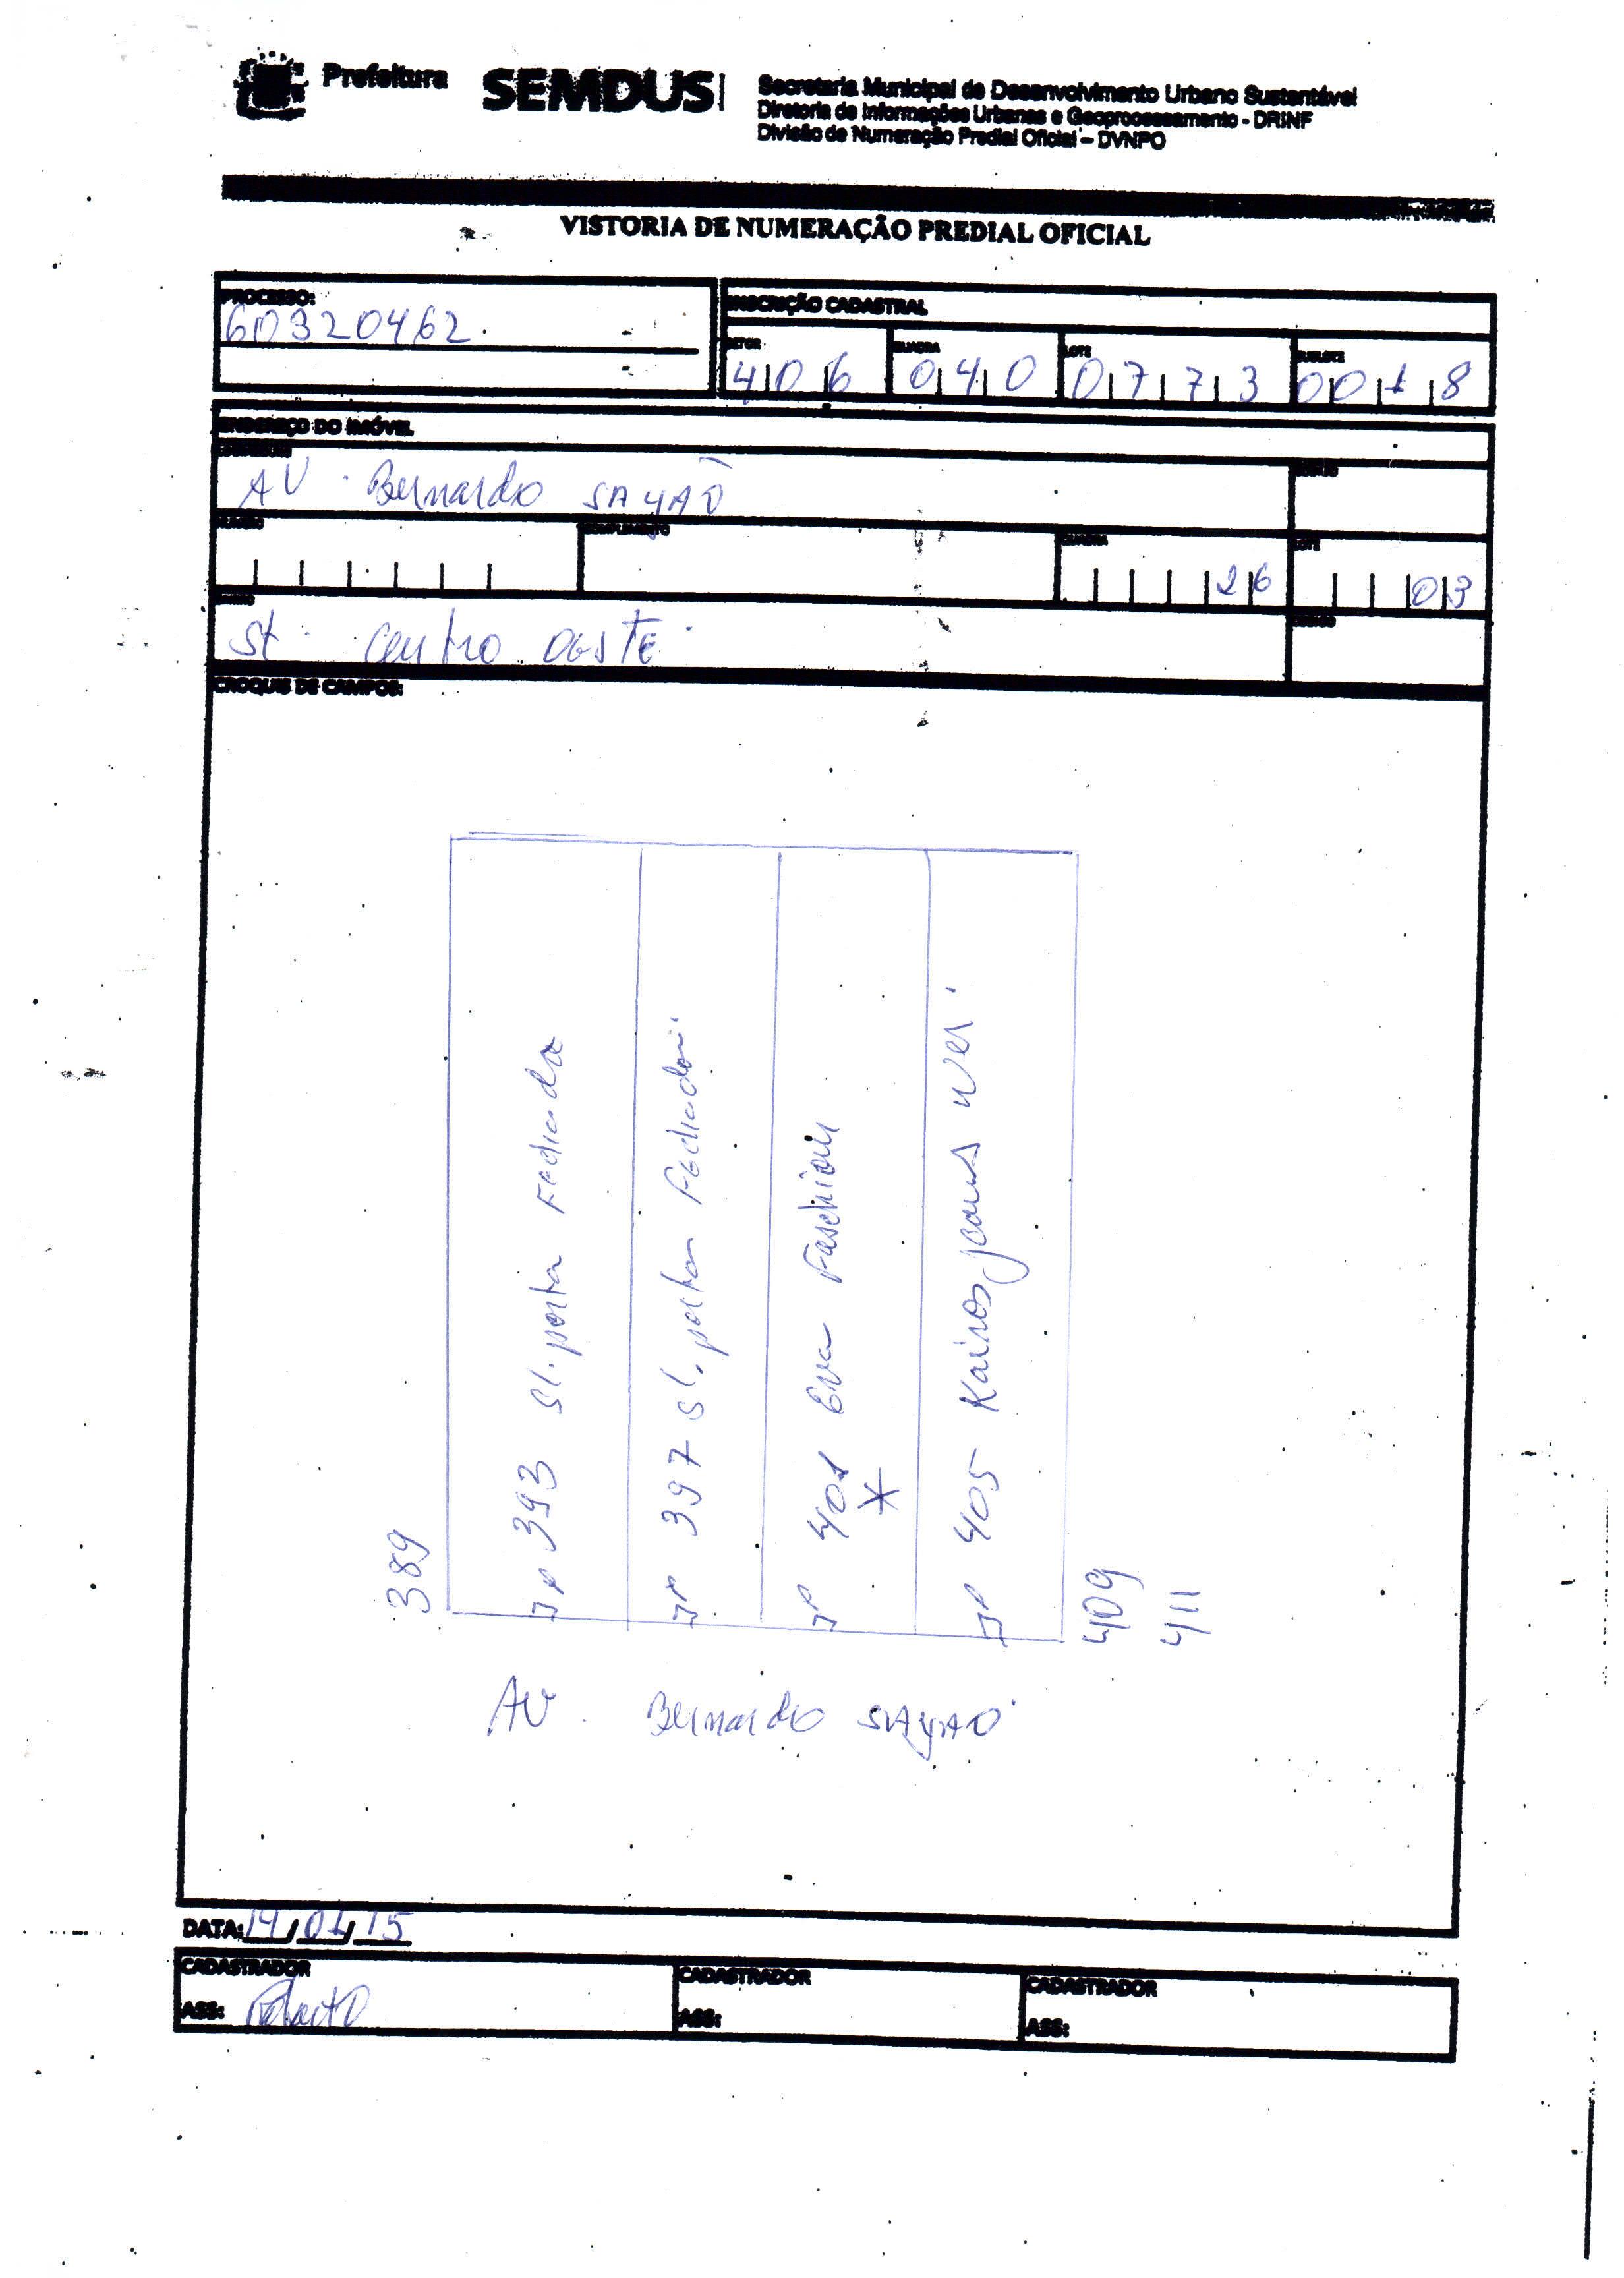 Prefeitura
SEMDUS
Secretaria Municipal de Desenvolvimento Urbano Sustentável
Diretoria de Informações Urbanas e Geoprocessamento - DRINF
Divisão de Numeração Predial Oficial - DVNPO
VISTORIA DE NUMERAÇÃO PREDIAL OFICIAL
PROCESSO:
60320462
INSCRIÇÃO CADASTRAL
SETOR QUADRA LOTE SUBLOTE
406 040 0773 0018
ENDEREÇO DO IMÓVEL
AV. Bernardo SAYÃO
COMPLEMENTO
QUADRA
26
LOTE
03
St. Centro OESTE
CROQUIS DE CAMPOS:
389
393 Sl. porta Fechada
397 Sl. porta Fechada
401 Eva Faschion
*
405 Kairos jeans wer
409
411
AV. Bernardo SAYAO
DATA: 14/01/15
CADASTRADOR
ASS:
CADASTRADOR
ASS:
CADASTRADOR
ASS: